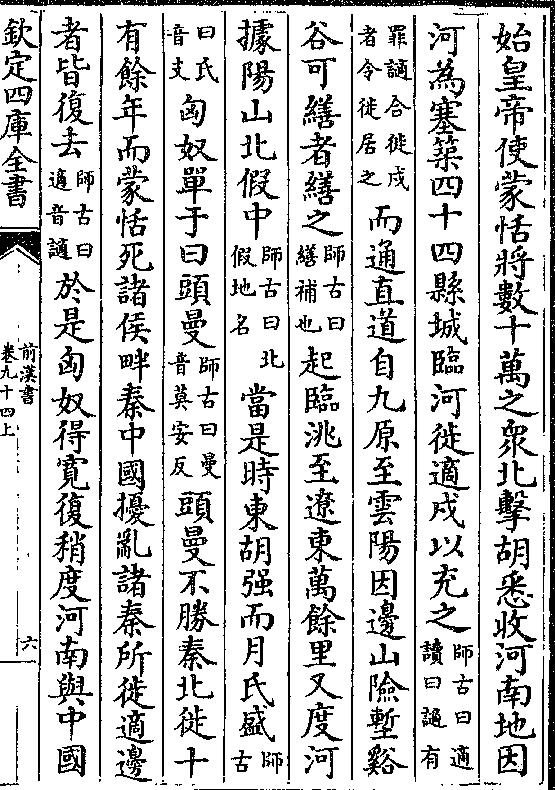 始皇帝使蒙恬將數十萬之眾北擊胡悉收河南地因
河為塞築四十四縣城臨河徙適戍以充之師古曰適讀曰謫有
罪謫合徙戍者令徙居之而通直道自九原至雲陽因邊山險塹谿
谷可繕者繕之師古曰繕補也起臨洮至遼東萬餘里又度河
據陽山北假中師古曰北假地名當是時東胡强而月氏盛師古
曰氏音支匈奴單于曰頭曼師古曰曼音莫安反頭曼不勝秦北徙十
有餘年而蒙恬死諸侯畔秦中國擾亂諸秦所徙適邊
者皆復去師古曰適音謫於是匈奴得寛復稍度河南與中國
欽定四庫全書
前漢書
卷九十四上
六